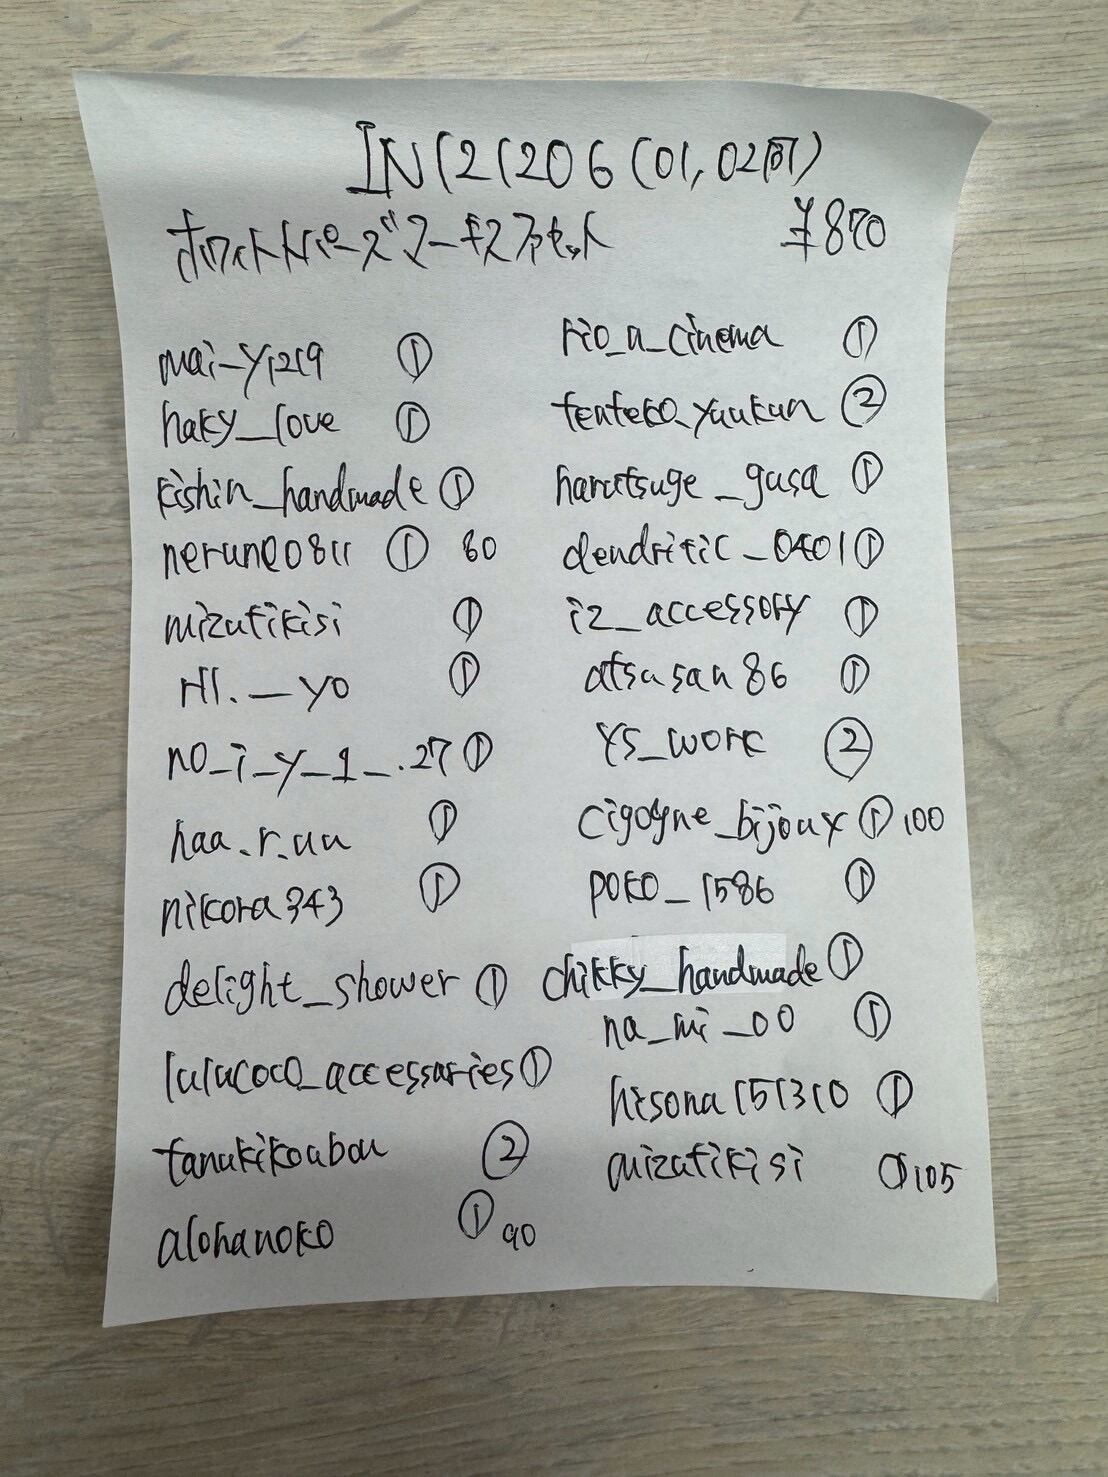 IN121206 (01,02同)
ホワイトトパーズマーキスファセット ¥870
mai_y1219 ①
haky_love ①
kishin_handmade ①
nerune0811 ① 80
mizutikisi ①
ri1.__yo ①
no_i_y_1_.27 ①
haa.r.uu ①
nikora343 ①
delight_shower ①
lulucoco_accessaries ①
tanukikoubou ②
alohanoko ① 90
rio_n_cinema ①
tenteko_yuukun ②
harutsuge_gusa ①
dendritic_0401 ①
iz_accessory ①
atsusan86 ①
ys_work ②
cigogne_bijoux ① 100
poko_1586 ①
chikky_handmade ①
na_mi_00 ①
hisona151310 ①
mizutikisi ① 105